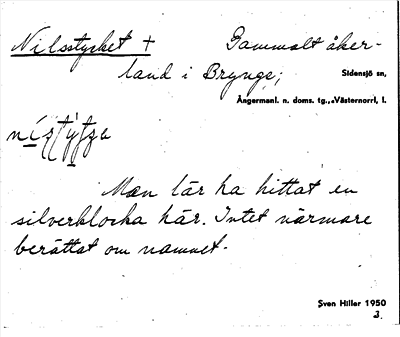 Nilsstycket + Gammalt åker-
land i Brynge;
Sidensjö sn,
Ångermanl. n. doms. tg., Västernorrl. l.
Man lär ha hittat en
silverklocka här. Intet närmare
berättat om namnet.
Sven Hiller 1950
3.